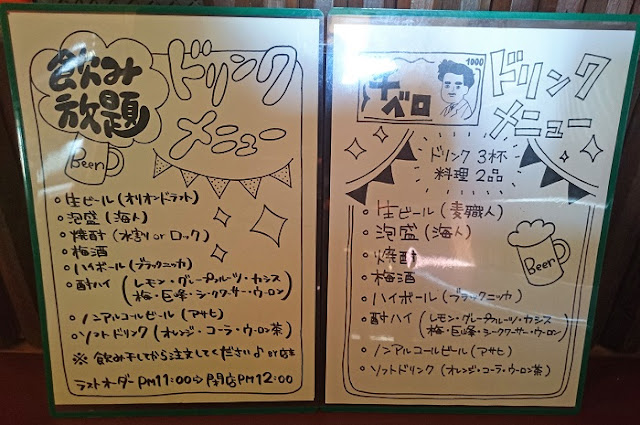 飲み
放題
ドリンク
メニュー
Beer
○生ビール(オリオンドラフト)
○泡盛(海人)
○焼酎(水割り or ロック)
○梅酒
○ハイボール(ブラックニッカ)
○酎ハイ(レモン・グレープフルーツ・カシス
梅・巨峰・シークワーサー・ウーロン)
○ノンアルコールビール(アサヒ)
○ソフトドリンク(オレンジ・コーラ・ウーロン茶)
※飲み干してから注文してください♪
ラストオーダーPM11:00⇨閉店PM12:00
1000
ベロ
ドリンク
メニュー
ドリンク 3杯
料理 2品
○生ビール(麦職人)
○泡盛(海人)
○焼酎
○梅酒
○ハイボール(ブラックニッカ)
○酎ハイ(レモン・グレープフルーツ・カシス
梅・巨峰・シークワーサー・ウーロン)
○ノンアルコールビール(アサヒ)
○ソフトドリンク(オレンジ・コーラ・ウーロン茶)
Beer